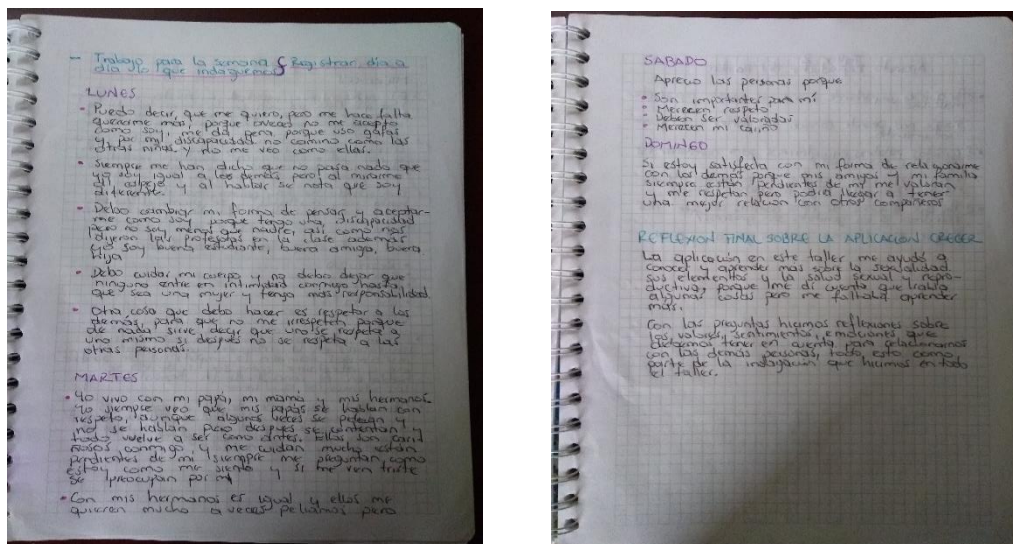 - Trabajo para la semana { Registrar día a
día lo que indaguemos}
LUNES
- Puedo decir, que me quiero, pero me hace falta
quererme más, porque a veces no me acepto
como soy, me da pena, porque uso gafas
y por mi discapacidad no camino como las
otras niñas y no me veo como ellas.
- Siempre me han dicho que no pasa nada que
yo soy igual a los demás pero al mirarme
al espejo y al hablar se nota que soy
diferente.
- Debo cambiar mi forma de pensar y aceptar-
me como soy porque tengo una discapacidad
pero no soy menos que nadie, así como nos
dijeron las profesoras en la clase además
yo soy buena estudiante, buena amiga, buena
hija
- Debo cuidar mi cuerpo y no debo dejar que
ninguno entre en intimidad conmigo hasta
que sea una mujer y tenga más responsabilidad.
- Otra cosa que debo hacer es respetar a los
demás, para que no me irrespeten porque
de nada sirve, decir que uno se respeta a
uno mismo si después no se respeta a las
otras personas.
MARTES
- Yo vivo con mi papá, mi mamá y mis hermanos.
Yo siempre veo que mis papás se hablan con
respeto, aunque algunas veces se pelean y
no se hablan pero después se contentan y
todo vuelve a ser como antes. Ellos son cari
ñosos conmigo y me cuidan mucho están
pendientes de mi siempre me preguntan como
estoy como me siento y si me ven triste
se preocupan por mi
- Con mis hermanos es igual y ellos me
quieren mucho a veces peliamos pero
SABADO
Aprecio las personas porque
- Son importantes para mí
- Merecen respeto
- Deben ser valoradas
- Merecen mi cariño
DOMINGO
Si estoy satisfecta con mi forma de relacionarme
con los demás porque mis amigos y mi familia
siempre están pendientes de mi me valoran
y me respetan pero podría llegar a tener
una mejor relación con otros compañeros
REFLEXION FINAL SOBRE LA APLICACIÓN CRECER
La aplicación en este taller me ayudó a
conocer y aprender más sobre la sexualidad
sus elementos y la salud sexual y repro-
ductiva, porque me di cuenta que sabía
algunas cosas pero me faltaba aprender
más.
Con las preguntas hicimos reflexiones sobre
los valores, sentimientos, emociones que
debemos tener en cuenta para relacionarnos
con las demás personas, todo esto como
parte de la indagación que hicimos en todo
el taller.